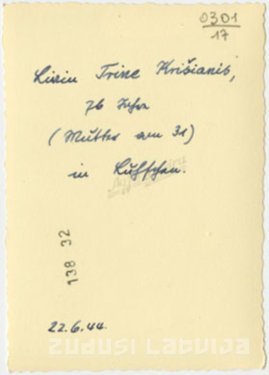 0301
17
Liwin Trine Krišianis,
76 Jahre
(Mutter von 31)
in
138 32
22.6.44.
zudusi Latvija